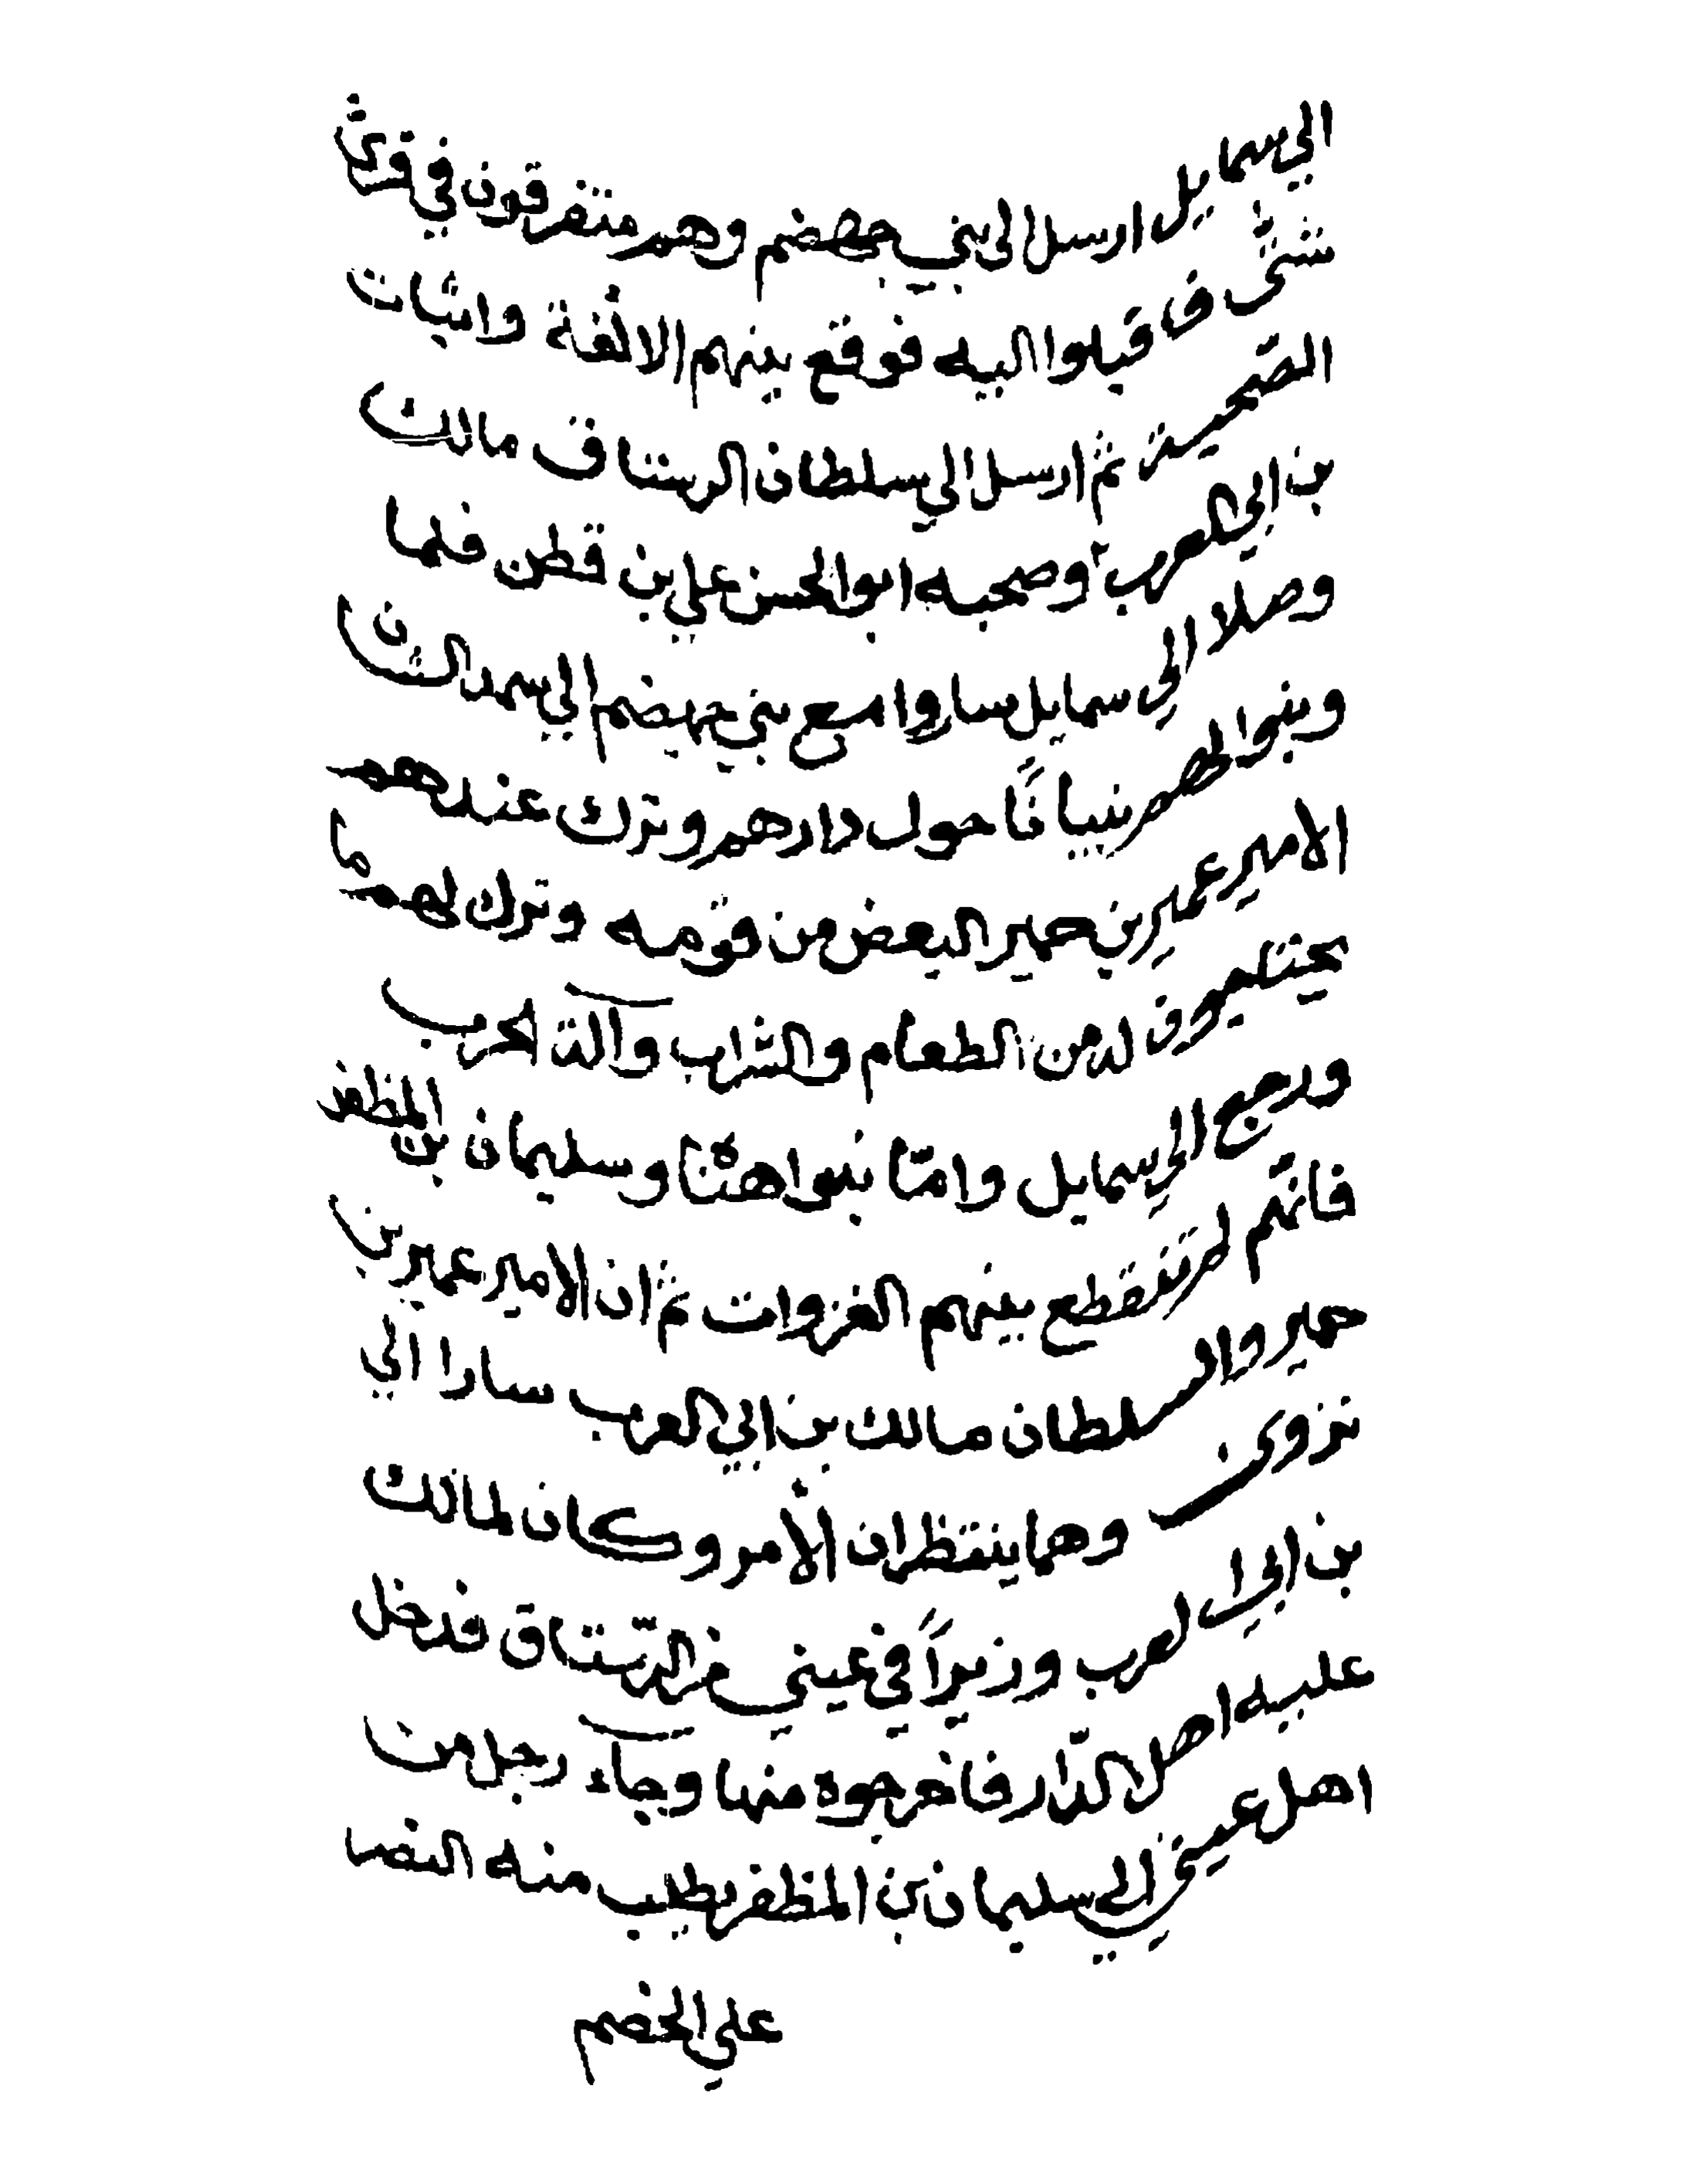 الي سمايل ارسل الى بني جهضم وهم متفرقون في قرى
شتى فاقبلوا اليه فوقع بينهم الالفة واثبات
الصحبة ثم ارسل الي سلطان الرستاق مالك
بن ابي العرب وصحبه ابو الحسن علي بن قطن فلما
وصلا الي سمايل ساروا مع بني جهضم الي سمد الشان
وبنوا لهم بنيانًا حول دارهم وترك عندهم
الامير عمير بن حمير البعض من قومه وترك لهم ما
يحتاجون له من الطعام والشراب وآلة الحرب
ورجع الي سمايل وامّا بنوا هناه وسليمان بن المظفر
فانهم لم تنقطع بينهم الغزوات ثم ان الامير عمير بن
حمير والسلطان مالك بن ابي العرب سارا الي
نزوى وهما ينتظران الأمر وكان لمالك
بن ابي العرب وزيرًا في عيني من الرّستاق فدخل
عليه اهل الدّار فاخرجوه منها وجآء رجل من
اهل عيني الي سليمان بن المظفر يطلب منه النصر
علي الخصم